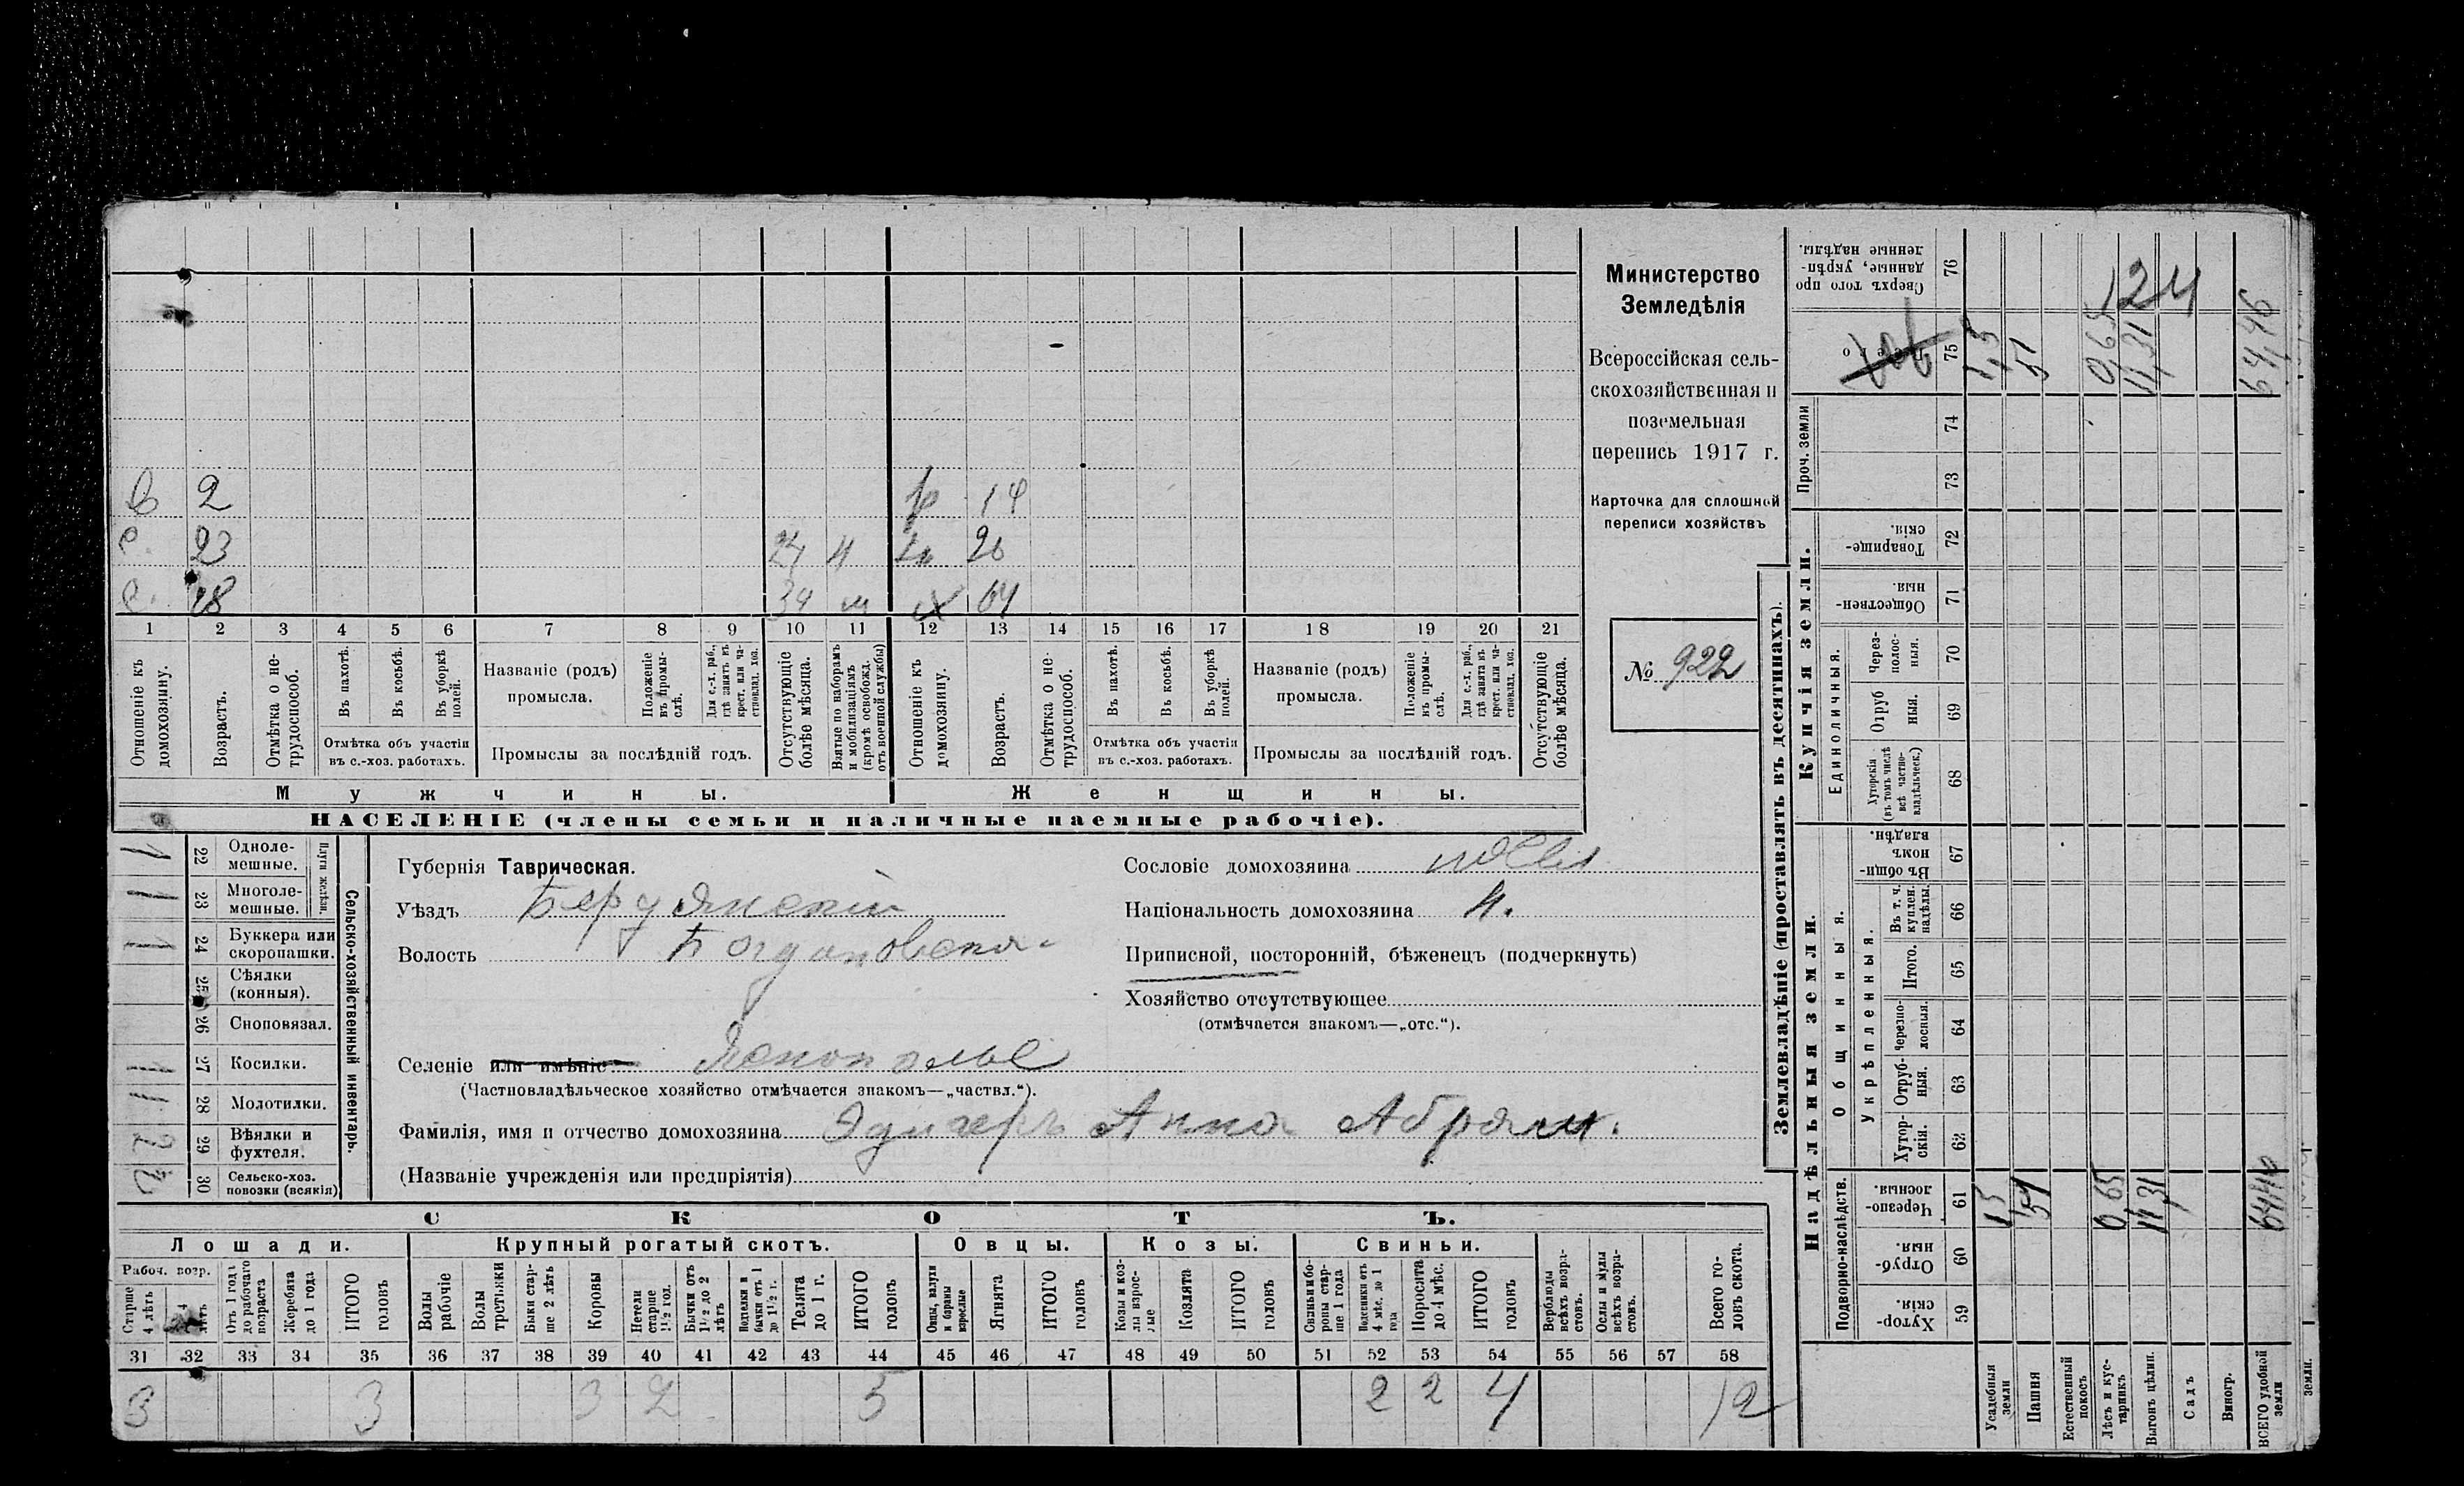 в 2 14
с. 23 24 4 20
с. 28 34 м х 64
1 2 3 4 5 6 7 8 9 10 11 12 13 14 15 16 17 18 19 20 21
Отношеніе къ домохозяину.
Возрастъ.
Отмѣтка о не-трудоспособ.
Въ пахотѣ.
Въ косьбѣ.
Въ уборкѣ полей.
Отмѣтка объ участіи
въ с.-хоз. работахъ.
Названіе (родъ)
промысла.
Положеніе въ промы-слѣ.
Для с.-х. раб., гдѣ занятъ въ крест. или ча-ствовлад. хоз.
Промыслы за послѣдній годъ.
Отсутствующіе болѣе мѣсяца.
Взятые по наборамъ и мобилизаціямъ (кромѣ освобожд. отъ военной службы)
Отношеніе къ домохозяину.
Возрастъ.
Отмѣтка о не-трудоспособ.
Въ пахотѣ.
Въ косьбѣ.
Въ уборкѣ полей.
Отмѣтка объ участіи
въ с.-хоз. работахъ.
Названіе (родъ)
промысла.
Положеніе въ промы-слѣ.
Для с.-х. раб., гдѣ занятъ въ крест. или ча-ствовлад. хоз.
Промыслы за послѣдній годъ.
Отсутствующіе болѣе мѣсяца.
Мужчины. Женщины.
НАСЕЛЕНІЕ (члены семьи и наличные наемные рабочіе).
Министерство
Земледѣлія
Всероссійская сель-
скохозяйственная и
поземельная
перепись 1917 г.
Карточка для сплошной
переписи хозяйствъ
№ 922
1 22 Одноле-мешные.
1 23 Многоле-мешные.
Плуги желѣзн.
1 24 Буккера или скоропашки.
25 Сѣялки (конныя).
26 Сноповязал.
1 27 Косилки.
1 28 Молотилки.
2 29 Вѣялки и фухтеля.
2 30 Сельско-хоз. повозки (всякія)
Сельско-хозяйственный инвентарь.
Губернія Таврическая.
Уѣздъ Бердянскій
Волость Богдановская
Селеніе или имѣніе Яснополье
(Частновладѣльческое хозяйство отмѣчается знакомъ—„частвл.“).
Фамилія, имя и отчество домохозяина Эдигеръ Анна Абрам.
(Названіе учрежденія или предпріятія)
Сословіе домохозяина
Національность домохозяина Н.
Приписной, посторонній, бѣженецъ (подчеркнуть)
Хозяйство отсутствующее
(отмѣчается знакомъ—„отс.“).
СКОТЪ.
Лошади. Крупный рогатый скотъ. Овцы. Козы. Свиньи.
Рабоч. возр.
Старше 4 лѣтъ
лѣтъ
Отъ 1 года до рабочаго возраста
Жеребята до 1 года
ИТОГО головъ
Волы рабочіе
Волы третьяки
Быки стар-ше 2 лѣтъ
Коровы
Нетели старше 1½ год.
Бычки отъ 1½ до 2 лѣтъ
Нетелки и бычки отъ 1 до 1½ г.
Телята до 1 г.
ИТОГО головъ
Овцы, валухи и бараны взрослые
Ягнята
ИТОГО головъ
Козы и коз-лы взрос-лые
Козлята
ИТОГО головъ
Свиньи и бо-ровы стар-ше 1 года
Подсвинки отъ 4 мѣс. до 1 года
Поросята до 4 мѣс.
ИТОГО головъ
Верблюды всѣхъ возра-стовъ.
Ослы и мулы всѣхъ возра-стовъ.
Всего го-ловъ скота.
31 32 33 34 35 36 37 38 39 40 41 42 43 44 45 46 47 48 49 50 51 52 53 54 55 56 57 58
3 3 3 2 5 2 2 4 12
Землевладѣніе (проставлять въ десятинахъ).
Надѣльныя земли. Купчія земли. Проч. земли
Подворно-наслѣдств. Общинныя. Укрѣпленныя. Единоличныя.
Хутор-скія. 59
Отруб-ныя. 60
Черезпо-лосныя. 61
Хутор-скія. 62
Отруб-ныя. 63
Черезпо-лосныя. 64
Итого. 65
Въ т. ч. куплен. надѣлы. 66
Въ общи-номъ владѣн. 67
Хуторскія (въ томъ числѣ всѣ частно-владѣльческ.) 68
Отруб ныя. 69
Через-полос-ныя. 70
Обществен-ныя. 71
Товарище-скія. 72
73
74
75
Сверхъ того про данные, укрѣп-ленные надѣлы. 76
Усадебныя земли 1,5 1,5
Пашня 51 51
Естественный покосъ
Лѣсъ и кус-тарникъ 0,65 0,65
Выгонъ цѣлин. 11,31 11,31
Садъ
Виногр.
ВСЕГО удобной земли 64,46 64,46
земли.
124